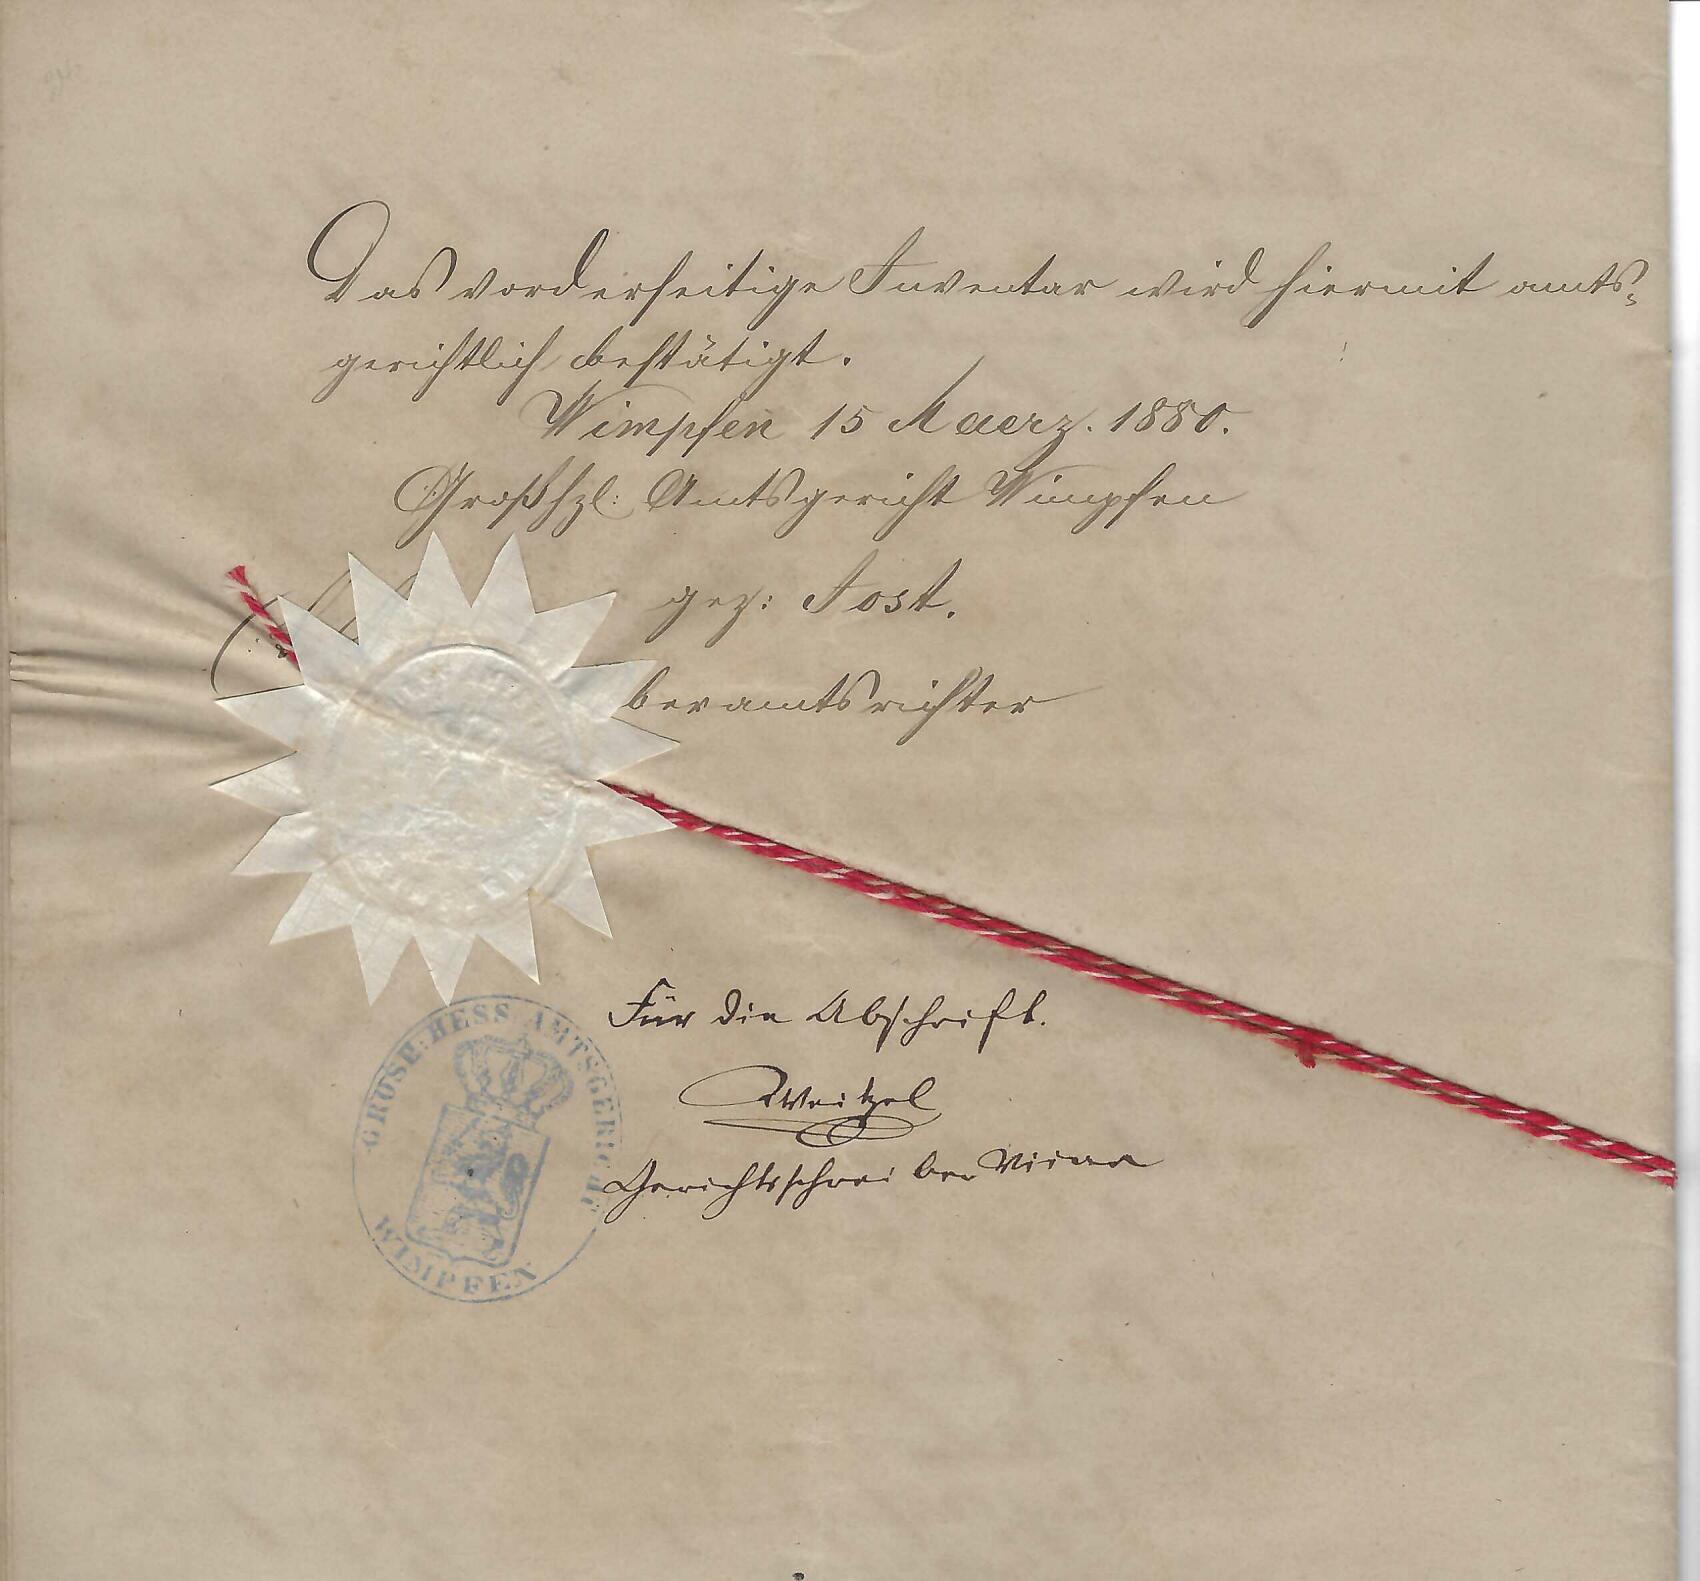 Das vorderseitige Inventar wird hiermit amts-
gerichtlich bestätigt.
Wimpfen 15 Maerz. 1880.
Großhzl: Amtsgericht Wimpfen
gez: Jost.
beramtsrichter
Für die Abschrift.
Weitzel
Gerichtsschreiber
GROSH: HESS AMTSGERICHT
WIMPFEN